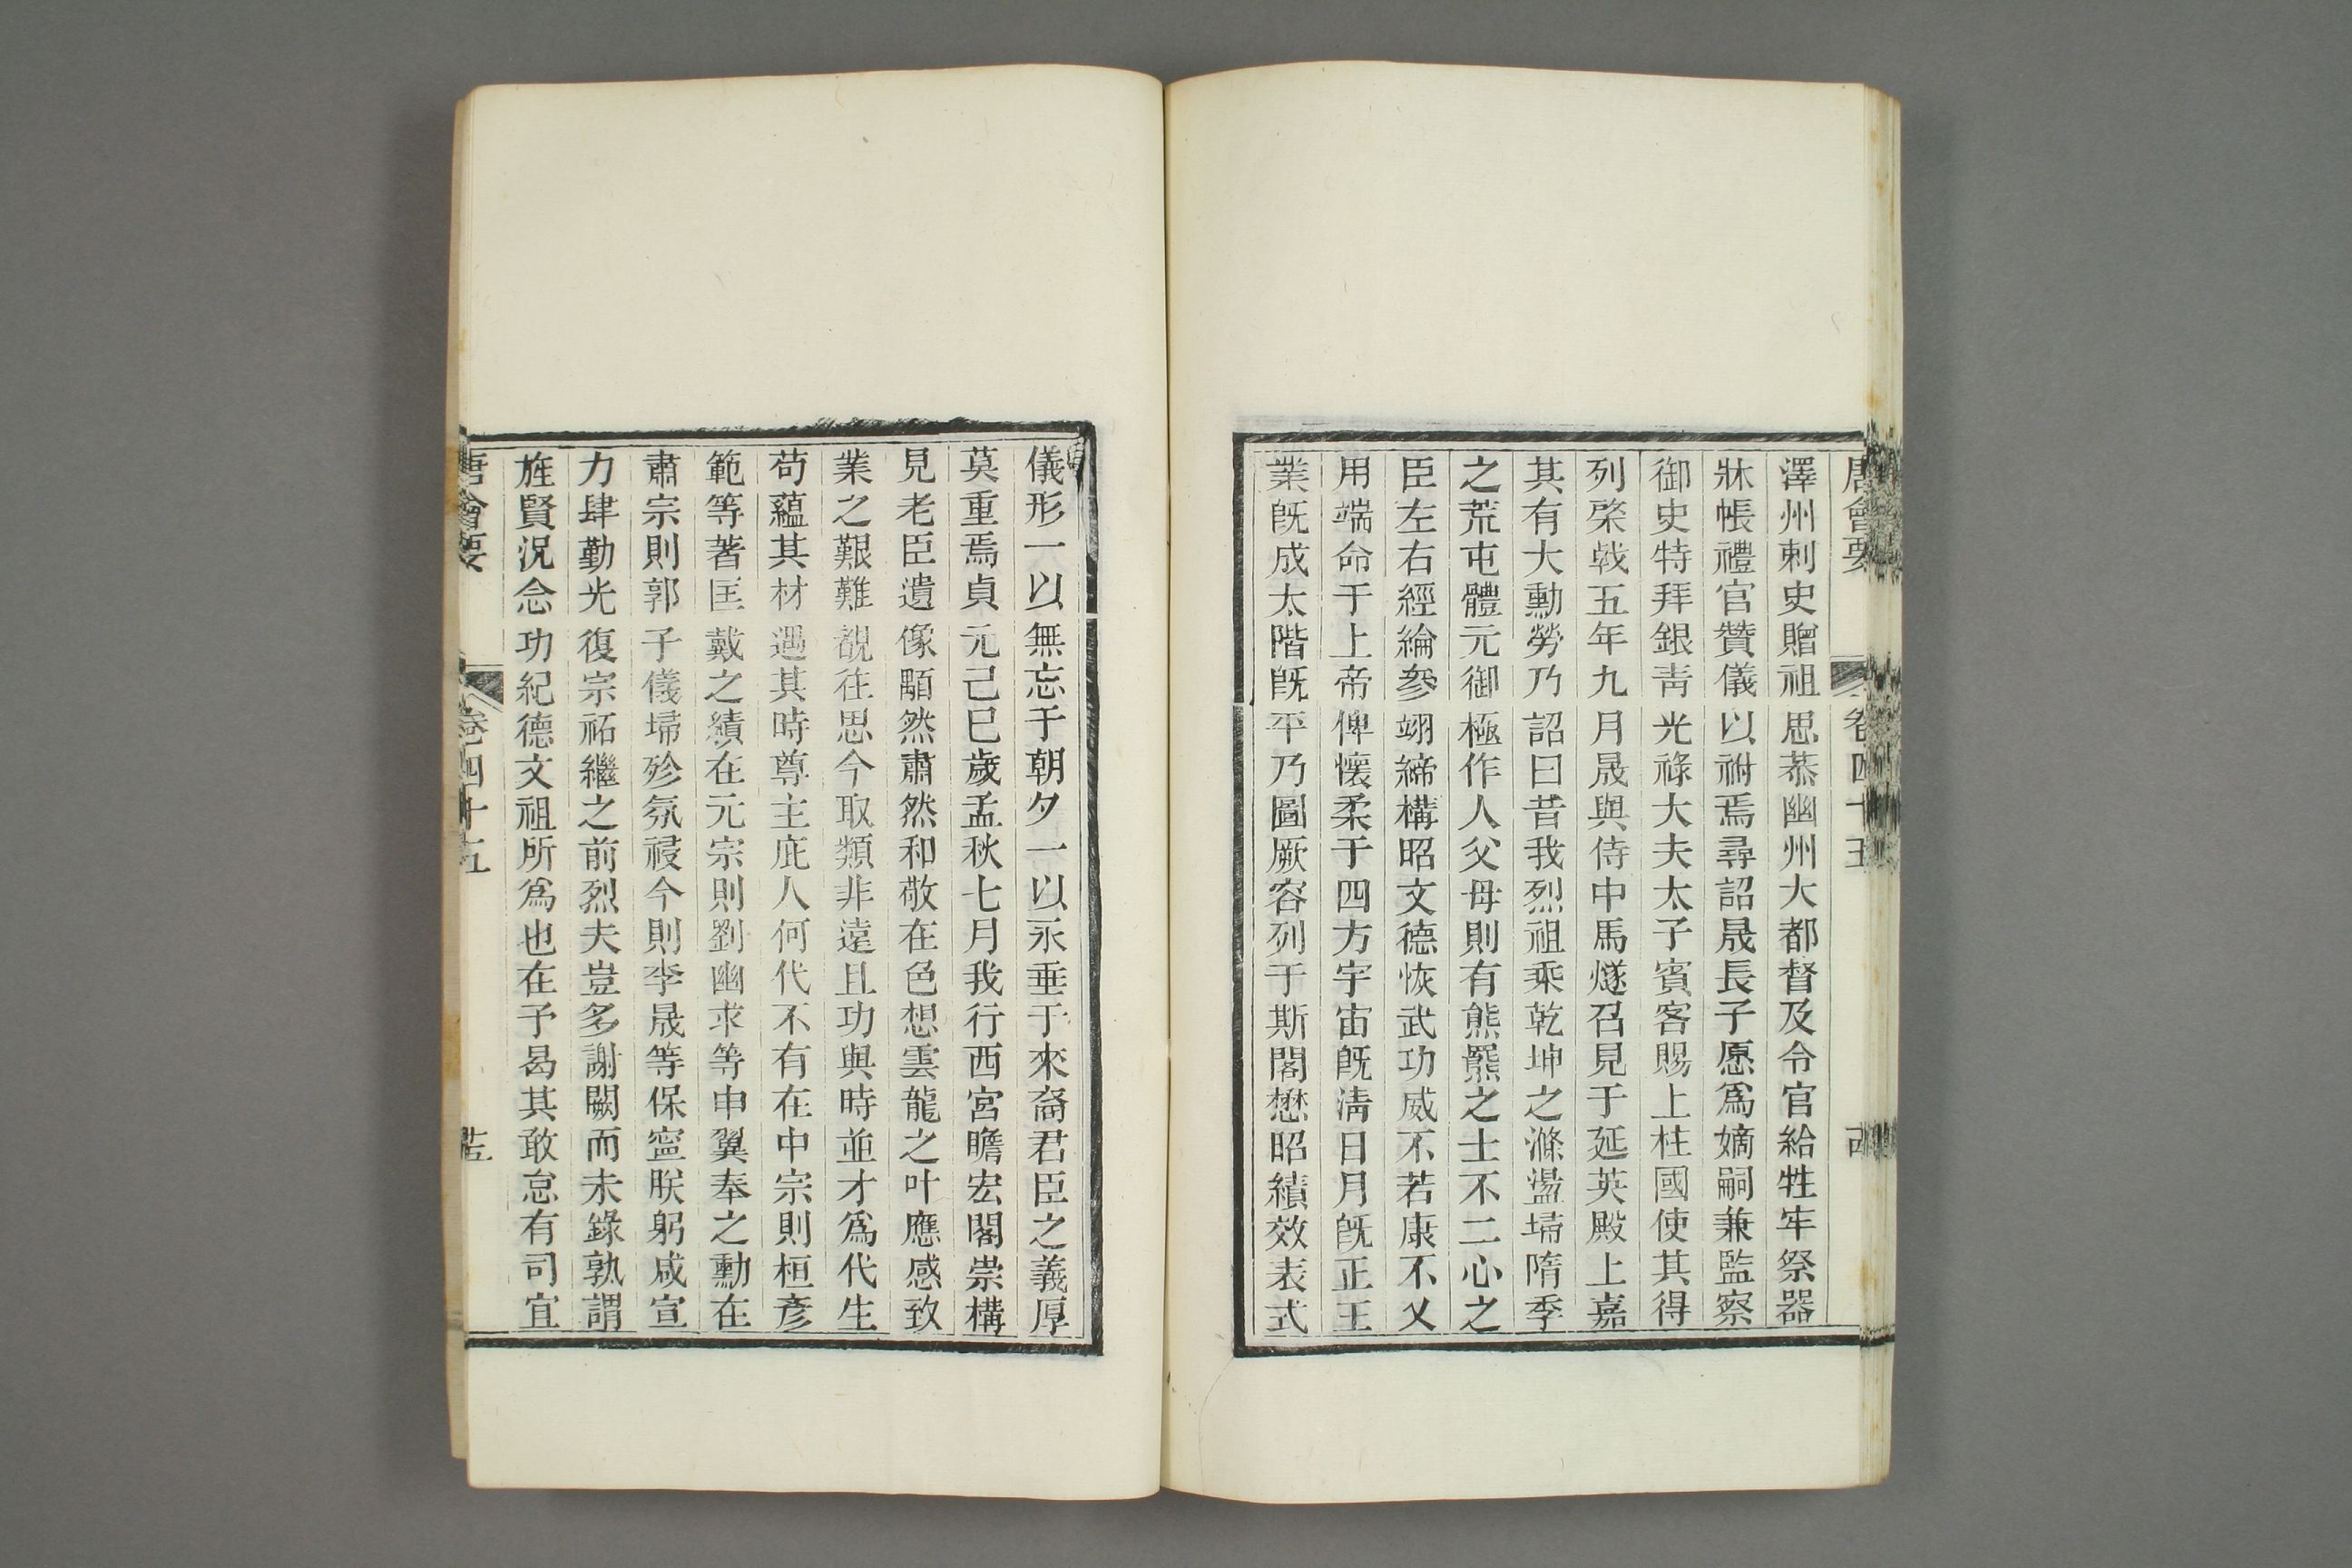 唐會要 卷四十五
澤州刺史贈祖思恭幽州大都督及令官給牲牢祭器
牀帳禮官贊儀以祔焉尋詔晟長子愿爲嫡嗣兼監察
御史特拜銀靑光祿大夫太子賓客賜上柱國使其得
列棨戟五年九月晟與侍中馬燧召見于延英殿上嘉
其有大勳勞乃詔曰昔我烈祖乘乾坤之滌盪埽隋季
之荒屯體元御極作人父母則有熊羆之士不二心之
臣左右經綸參翊締構昭文德恢武功威不若康不乂
用端命于上帝俾懷柔于四方宇宙旣淸日月旣正王
業旣成太階旣平乃圖厥容列于斯閣懋昭績效表式
儀形一以無忘于朝夕一以永垂于來裔君臣之義厚
莫重焉貞元己巳歲孟秋七月我行西宮瞻宏閣崇構
見老臣遺像顒然肅然和敬在色想雲龍之叶應感致
業之艱難覩往思今取類非遠且功與時並才爲代生
苟蘊其材遇其時尊主庇人何代不有在中宗則桓彥
範等著匡戴之績在元宗則劉幽求等申翼奉之勳在
肅宗則郭子儀埽殄氛祲今則李晟等保寧朕躬咸宣
力肆勤光復宗祏繼之前烈夫豈多謝闕而未錄孰謂
旌賢況念功紀德文祖所爲也在予曷其敢怠有司宜
唐會要 卷四十五